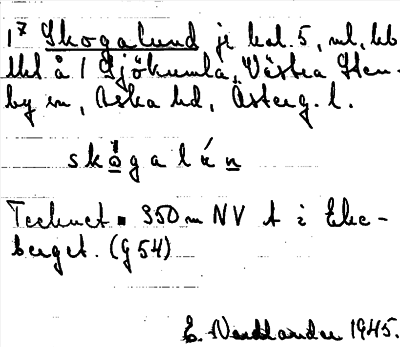 1⁷ Skogalund je kol. 5, ml, bb
lhl å 1 Sjökumla, Västra Sten-
by sn, Aska hd, Österg. l.
skògalún
Tecknet 350 m NV A i Eke-
berget. (G 54)
E. Nordlander 1945.